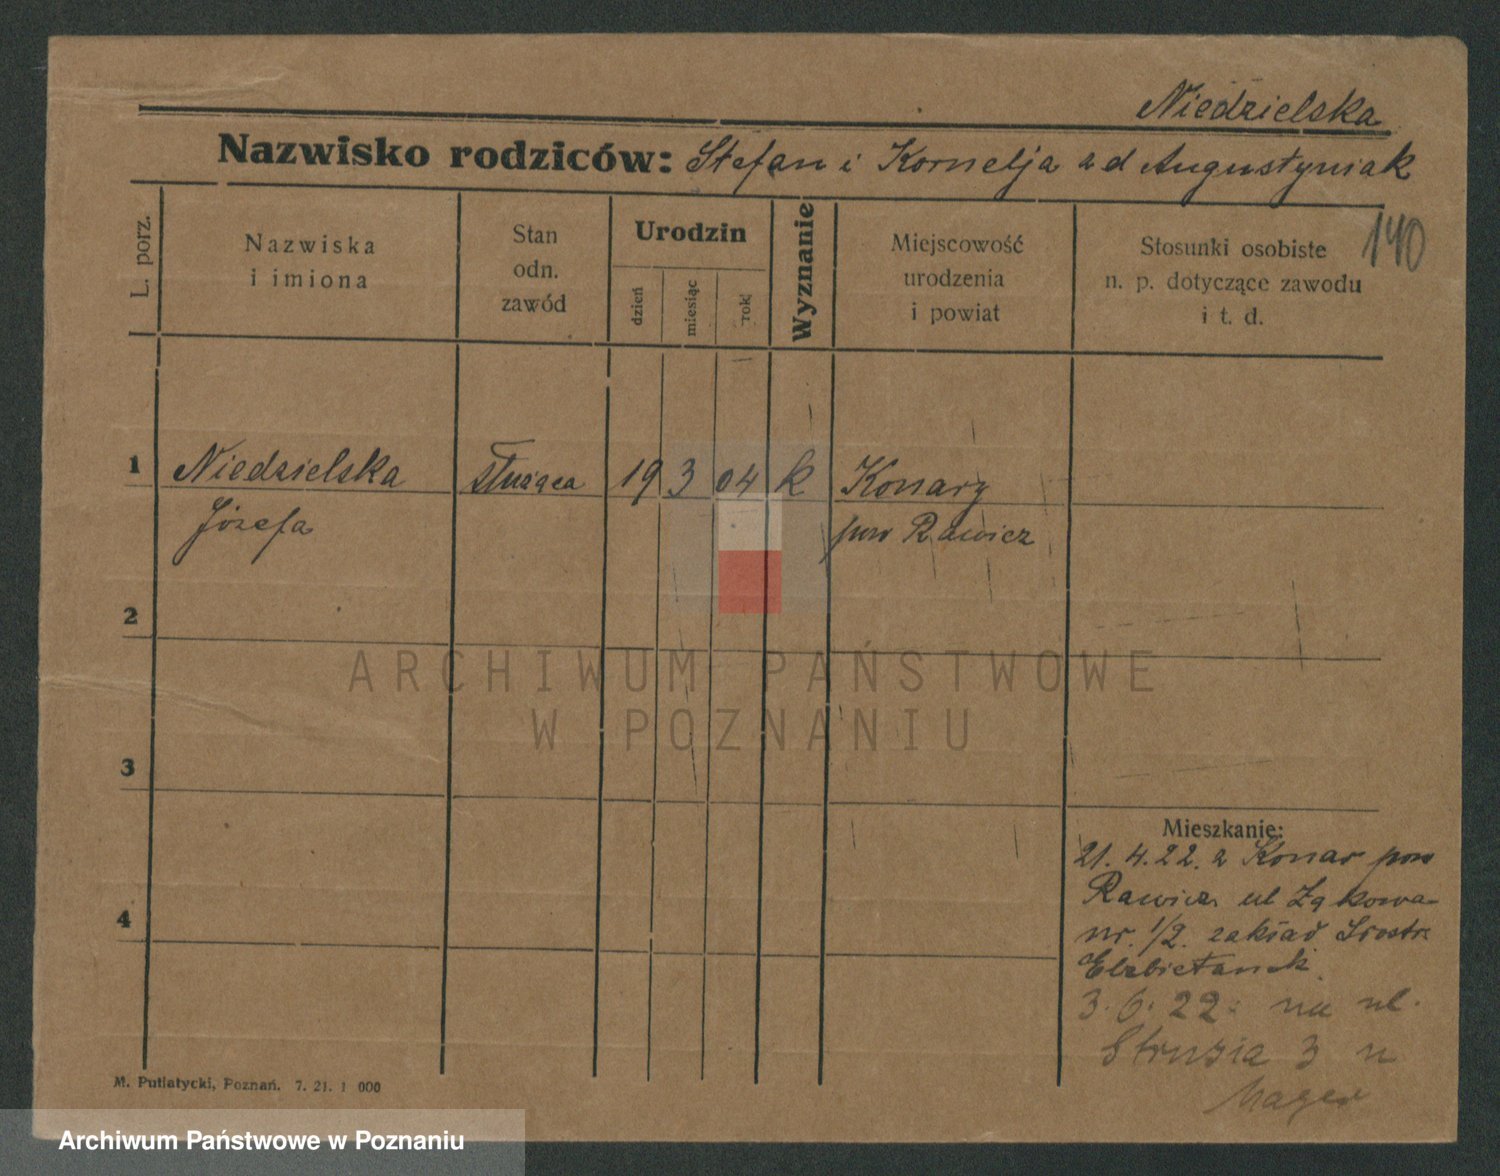 Niedzielska
Nazwisko rodziców: Stefan i Kornelja zd Augustyniak
140
L. porz.
Nazwiska
i imiona
Stan
odn.
zawód
Urodzin
dzień
miesiąc
rok
Wyznanie
Miejscowość
urodzenia
i powiat
Stosunki osobiste
n. p. dotyczące zawodu
i t. d.
1 Niedzielska służąca 19 3 04 k Konary
Józefa pow Rawicz
2
3
4
Mieszkanie:
21. 4. 22. z Konar pow
Rawicz ul Łąkowa
nr. 1/2. zakład Siostr
Elzbietanek
3. 6. 22. na ul.
Strusia 3 u
Mager
M. Putiatycki, Poznań. 7. 21. 1 000
ARCHIWUM PAŃSTWOWE
W POZNANIU
Archiwum Państwowe w Poznaniu